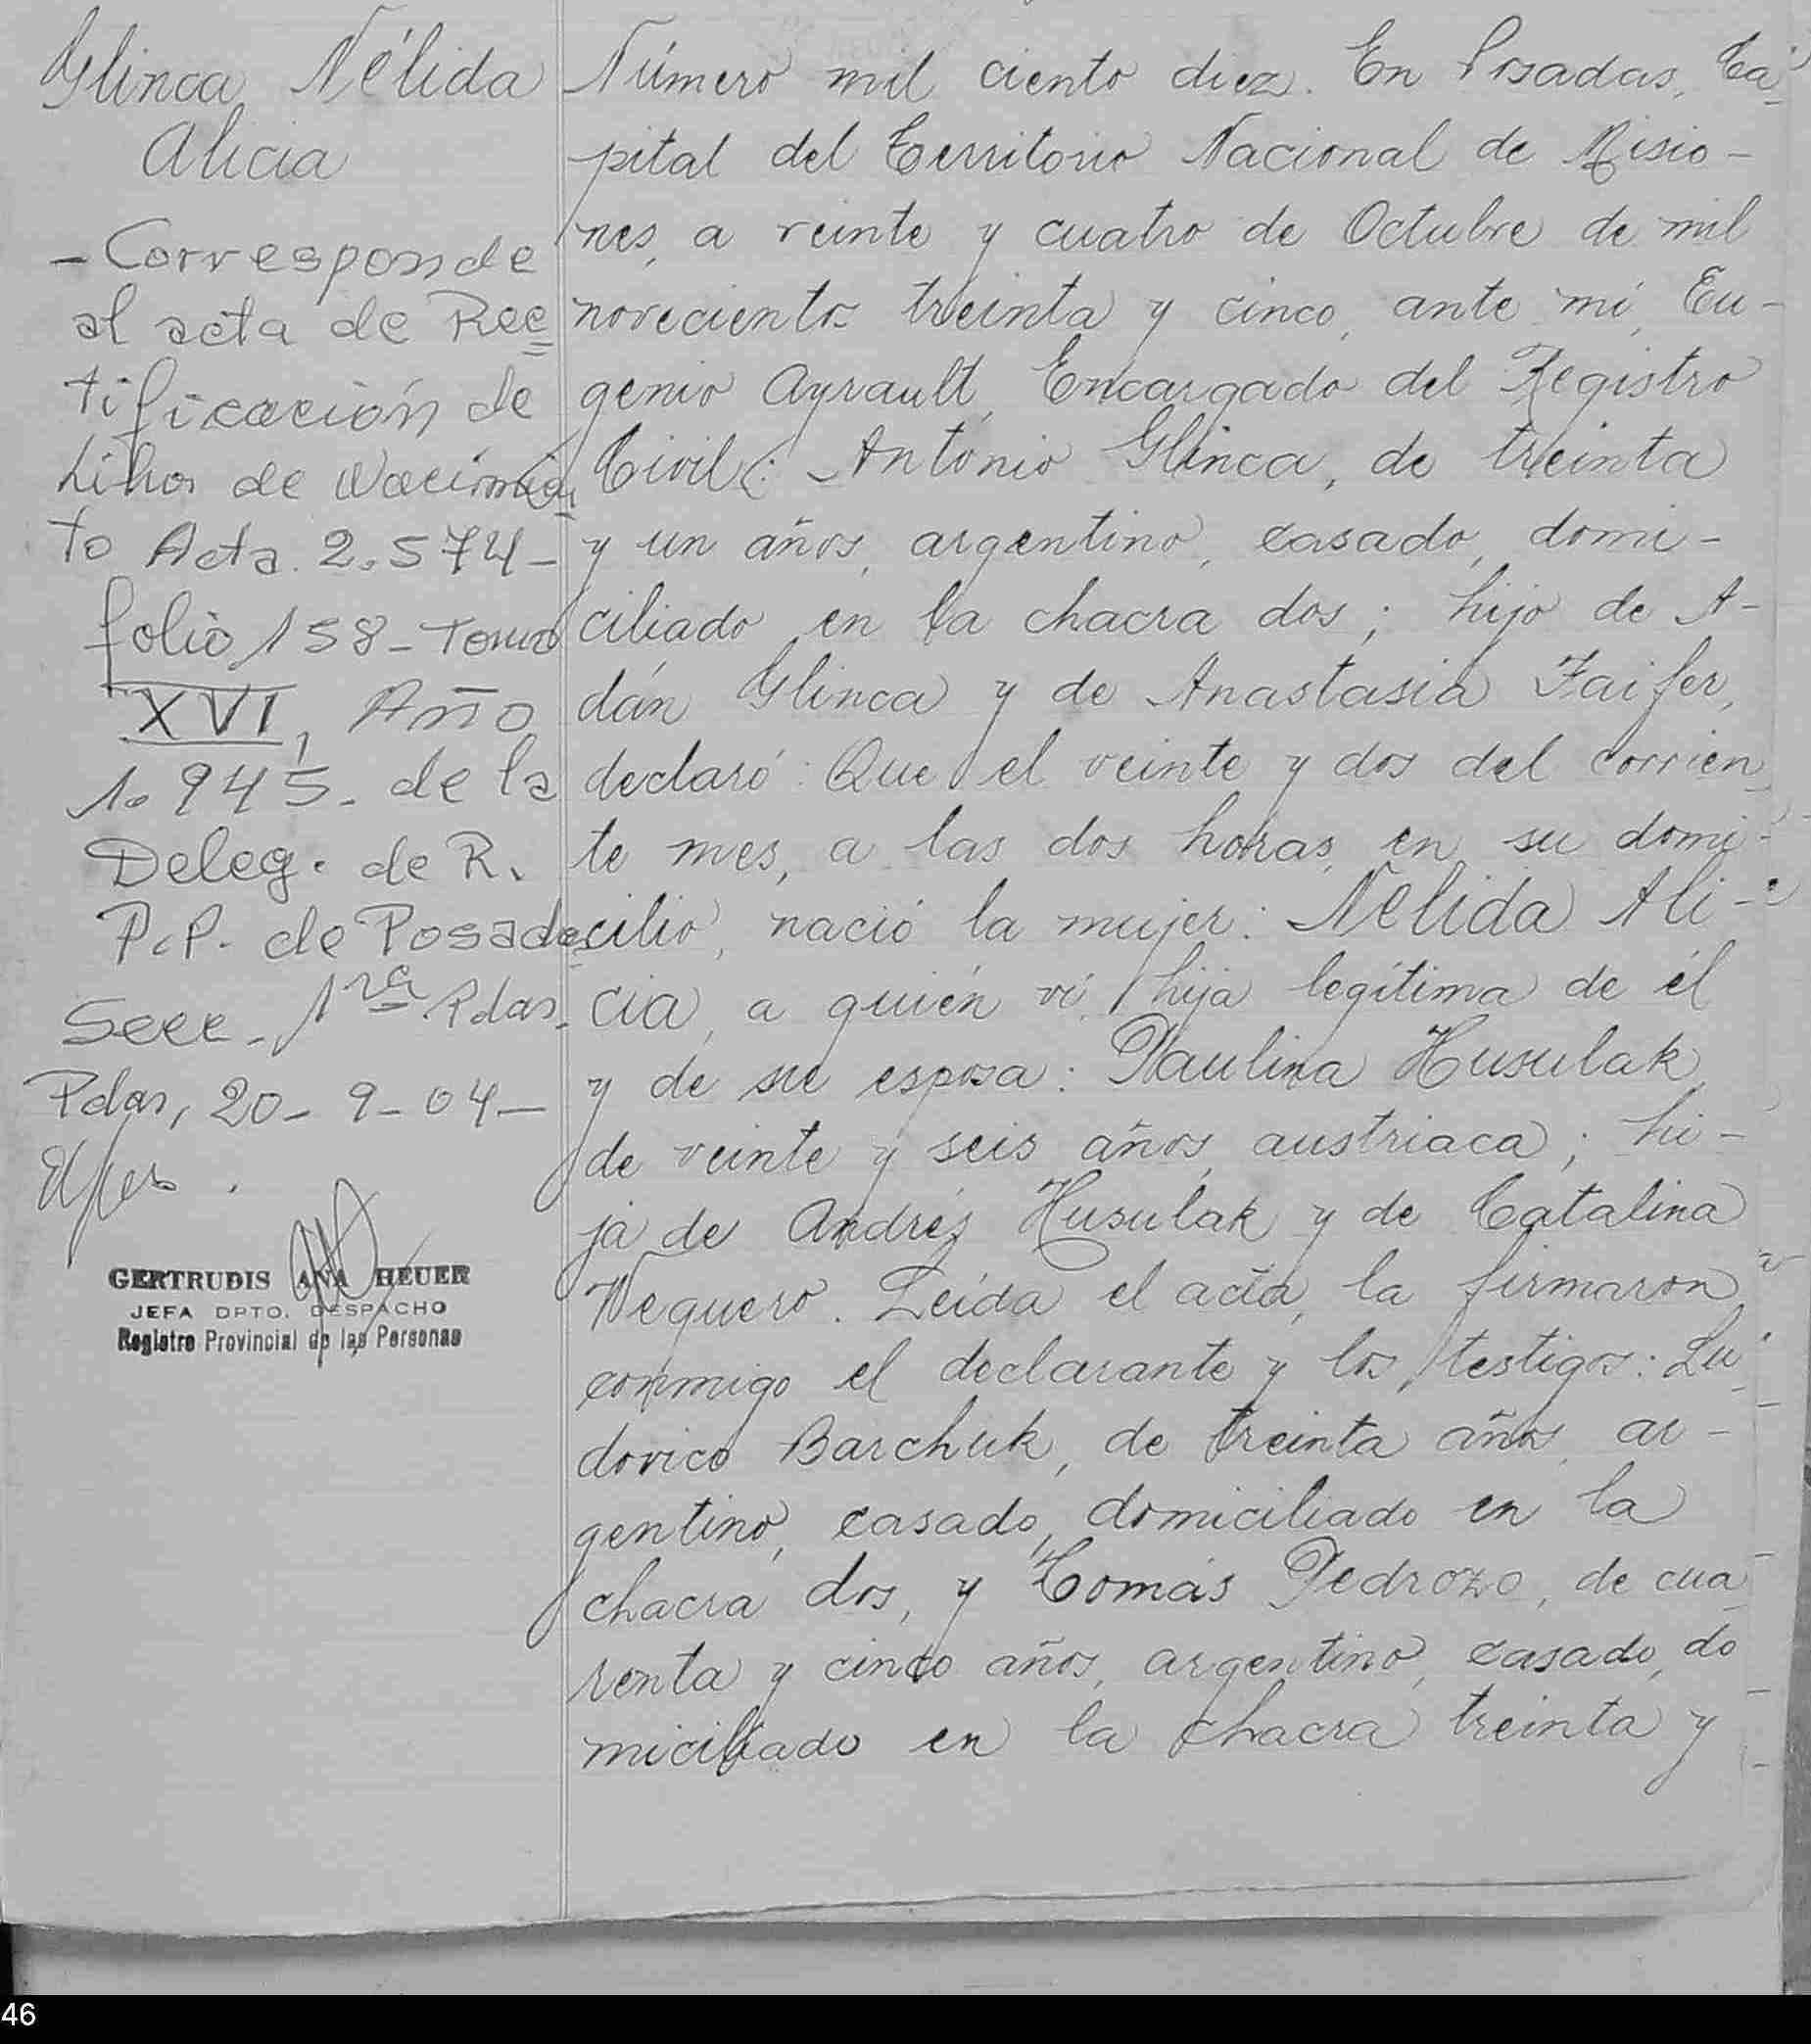 Glinca Nélida
Alicia
- Corresponde
al acta de Rec
tificación de
de Nacimien
to Acta 2.574-
folio 158 - Tomo
XVI, Año
1.945. de la
Deleg. de R.
P.P. de Posadas
Secc. 1ra Pdas.
Pdas, 20- 9- 04-
GERTRUDIS ANA HEUER
JEFA DPTO. DESPACHO
Registro Provincial de las Personas
Número mil ciento diez. En Posadas, Ca-
pital del Territorio Nacional de Misio-
nes, a veinte y cuatro de Octubre de mil
novecientos treinta y cinco, ante mí, Eu-
genio Ayrault, Encargado del Registro
Civil: Antonio Glinca, de treinta
y un años, argentino, casado, domi-
ciliado en la chacra dos; hijo de A-
dán Glinca y de Anastasia Faifer,
declaró: Que el veinte y dos del corrien
te mes, a las dos horas, en su domi-
cilio, nació la mujer: Nélida Ali-
cia, a quién ví, hija legítima de él
y de su esposa: Paulina Husulak,
de veinte y seis años, austriaca; hi-
ja de Andrés Husulak y de Catalina
Wequero. Leída el acta, la firmaron
conmigo el declarante y los testigos: Lu-
dovico Barchuk, de treinta años, ar-
gentino, casado, domiciliado en la
chacra dos, y Tomás Pedrozo, de cua-
renta y cinco años, argentino, casado, do
miciliado en la chacra treinta y
46